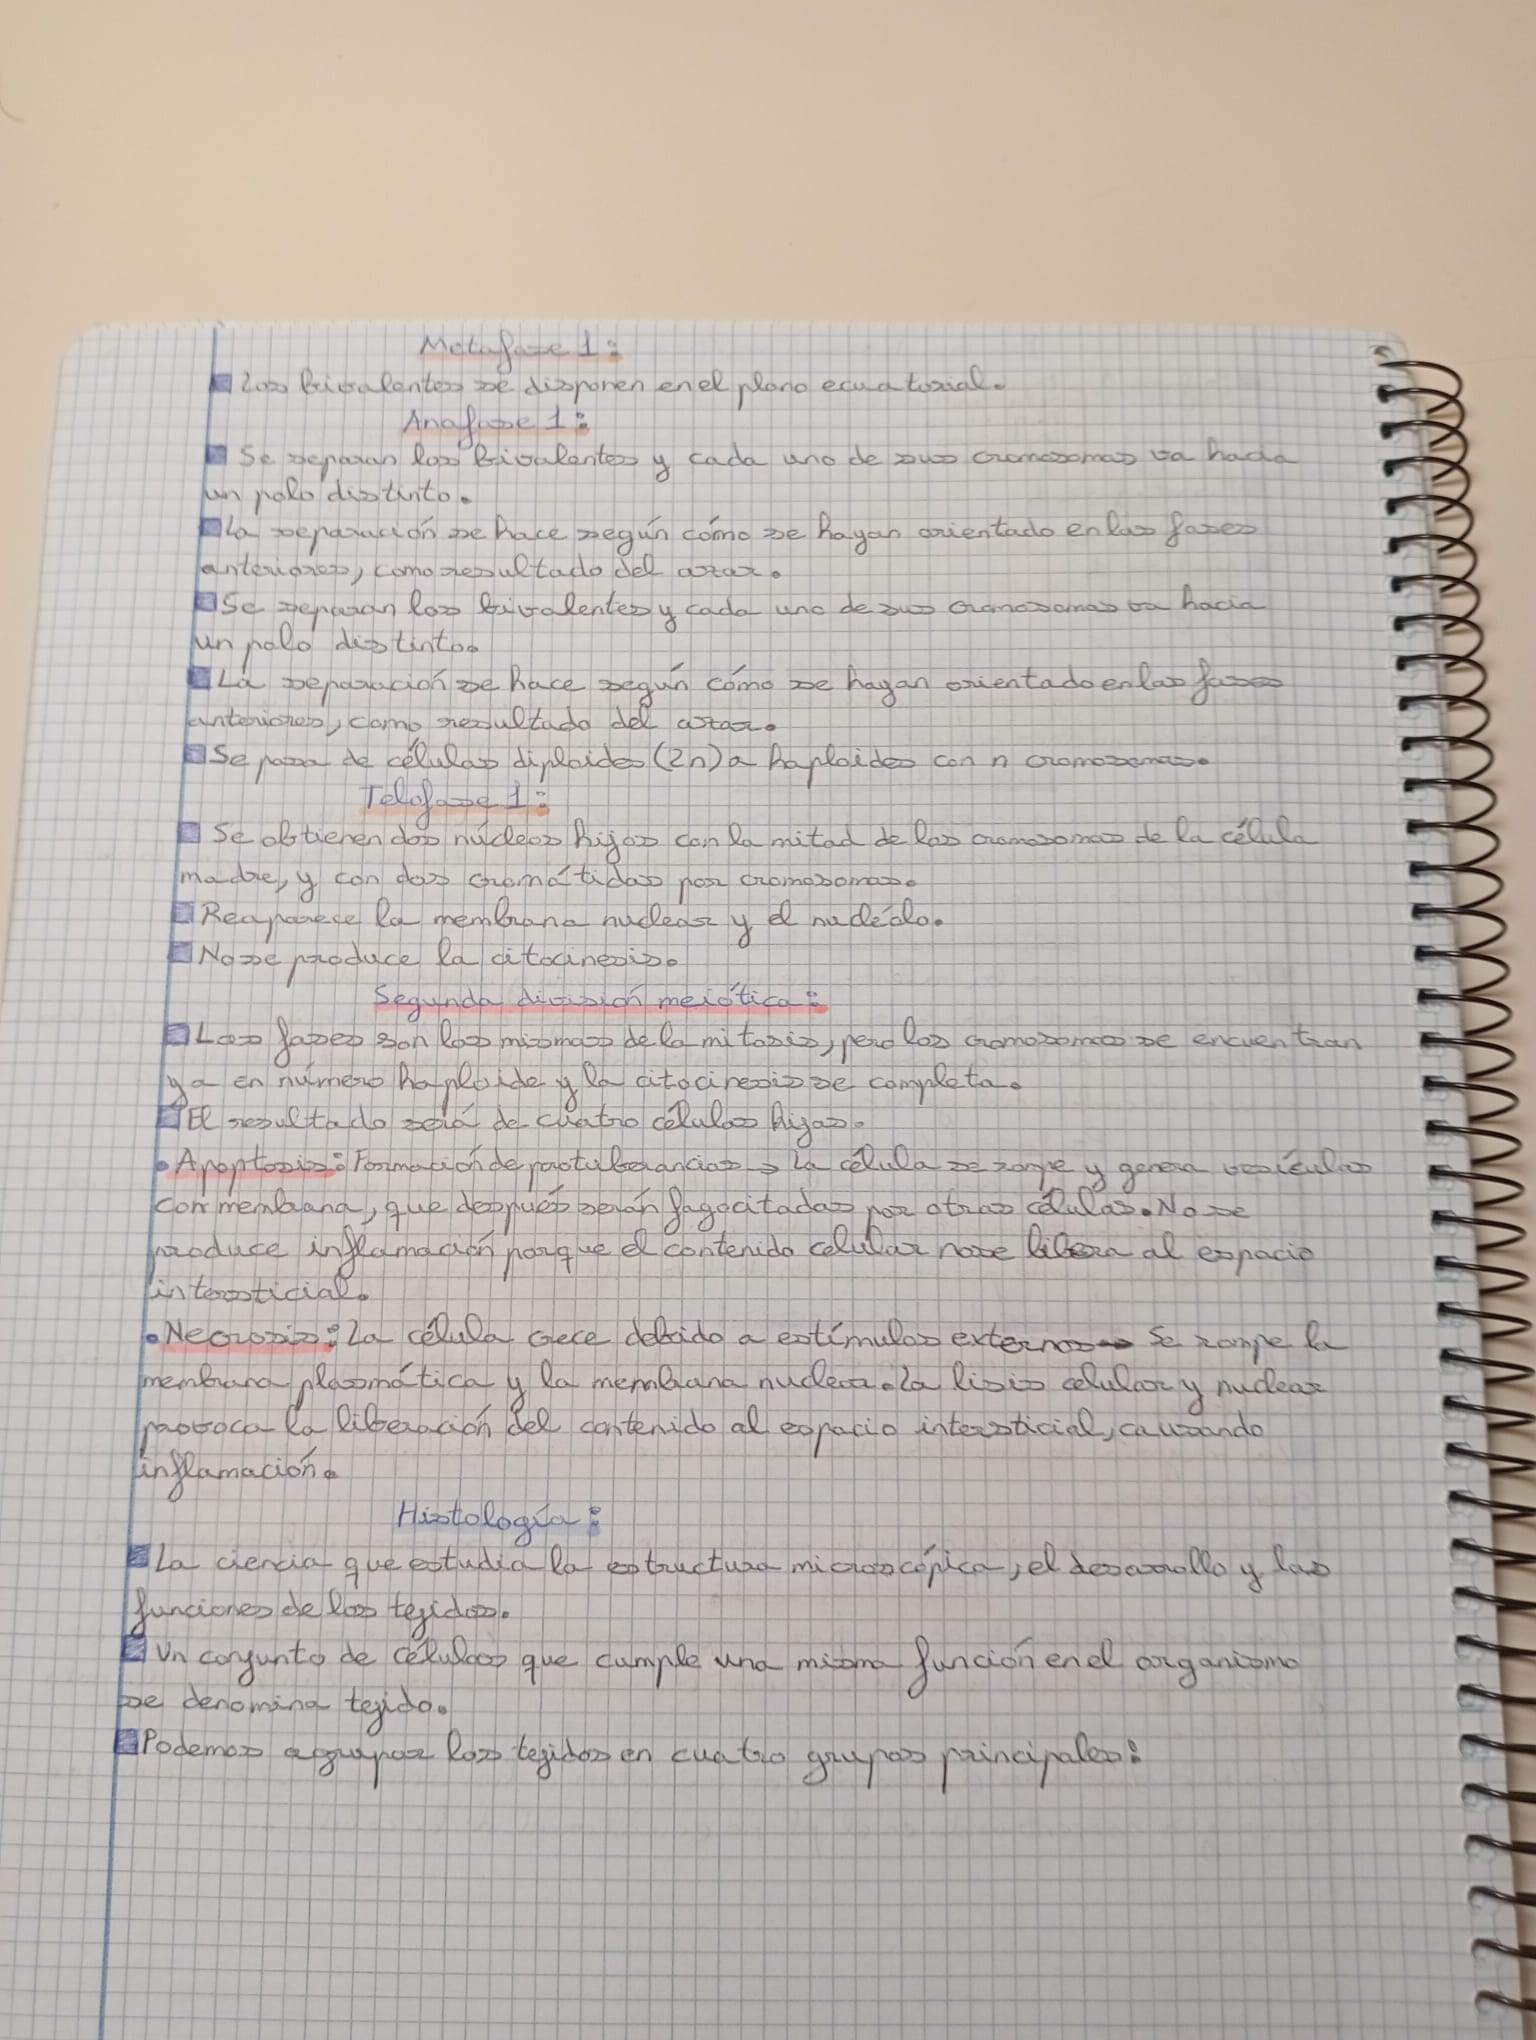 Metafase 1:
Los bivalentes se disponen en el plano ecuatorial.
Anafase 1:
Se separan los bivalentes y cada uno de sus cromosomas va hacia
un polo distinto.
La separación se hace según cómo se hayan orientado en las fases
anteriores, como resultado del azar.
Se separan los bivalentes y cada uno de sus cromosomas va hacia
un polo distinto.
La separación se hace según cómo se hayan orientado en las fases
anteriores, como resultado del azar.
Se pasa de células diploides (2n) a haploides con n cromosomas.
Telofase 1:
Se obtienen dos núcleos hijos con la mitad de los cromosomas de la célula
madre, y con dos cromátidas por cromosomas.
Reaparece la membrana nuclear y el nucléolo.
No se produce la citocinesis.
Segunda división meiótica:
Las fases son las mismas de la mitosis, pero los cromosomas se encuentran
ya en número haploide y la citocinesis se completa.
El resultado será de cuatro células hijas.
• Apoptosis: Formación de protuberancias → La célula se rompe y genera vesículas
con membrana, que después serán fagocitadas por otras células. No se
produce inflamación porque el contenido celular no se libera al espacio
intersticial.
• Necrosis: La célula crece debido a estímulos externos → Se rompe la
membrana plasmática y la membrana nuclear. La lisis celular y nuclear
provoca la liberación del contenido al espacio intersticial, causando
inflamación.
Histología:
La ciencia que estudia la estructura microscópica, el desarrollo y las
funciones de los tejidos.
Un conjunto de células que cumple una misma función en el organismo
se denomina tejido.
Podemos agrupar los tejidos en cuatro grupos principales: